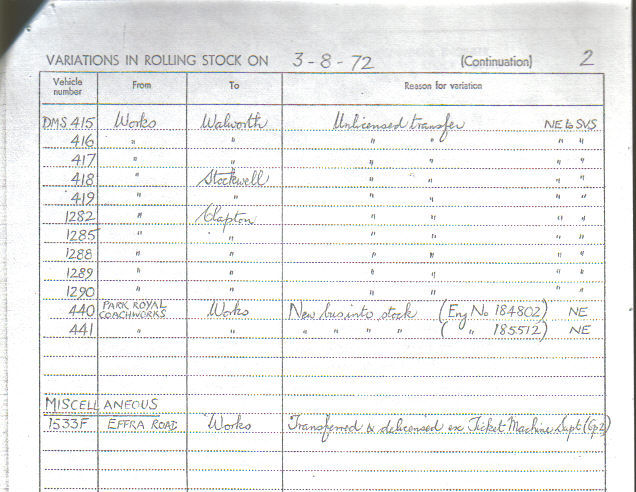 VARIATIONS IN ROLLING STOCK ON 3-8-72 (Continuation) 2
Vehicle number From To Reason for variation
DMS 415 Works Walworth Unlicensed transfer NE to SVS
416 " " " " " "
417 " " " " " "
418 " Stockwell " " " "
419 " " " " " "
1282 " Clapton " " " "
1285 " " " " " "
1288 " " " " " "
1289 " " " " " "
1290 " " " " " "
440 PARK ROYAL COACHWORKS Works New bus into stock (Eng No 184802) NE
441 " " " " " " ( " 185512) NE
MISCELLANEOUS
1533F EFFRA ROAD Works Transferred & delicensed ex Ticket Machine Dept (Gp2)